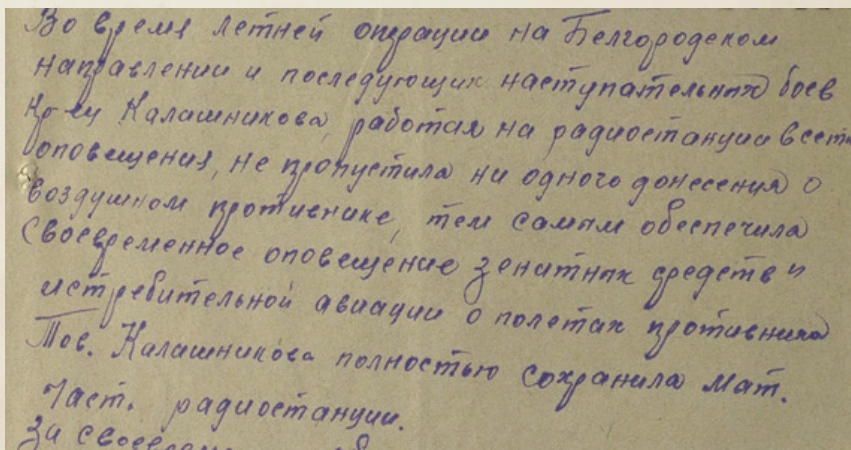 Во время летней операции на Белгородском
направлении и последующих наступательных боев
кр-ец Калашникова, работая на радиостанции в сети
оповещения, не пропустила ни одного донесения о
воздушном противнике, тем самым обеспечила
своевременное оповещение зенитных средств и
истребительной авиации о полетах противника
Тов. Калашникова полностью сохранила мат.
част. радиостанции.
За